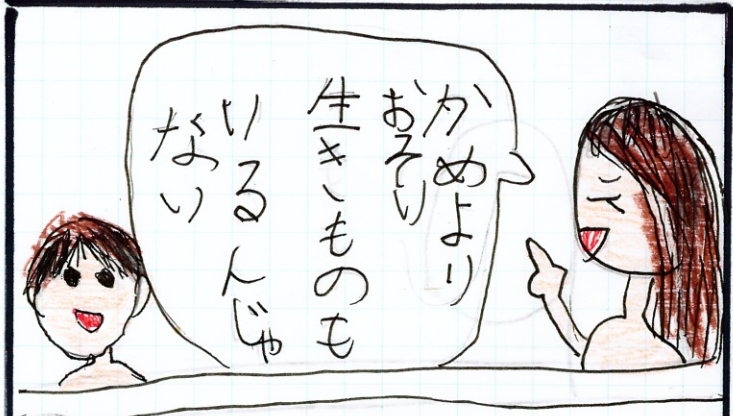 かめより
おそい
生きものも
いるんじゃ
ない